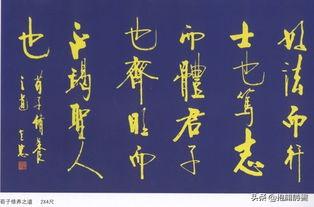 好法而行
士也篤志
而體君子
也齊明而
不竭聖人
也
荀子修養
之道
荀子修养之道 2X4尺
头条